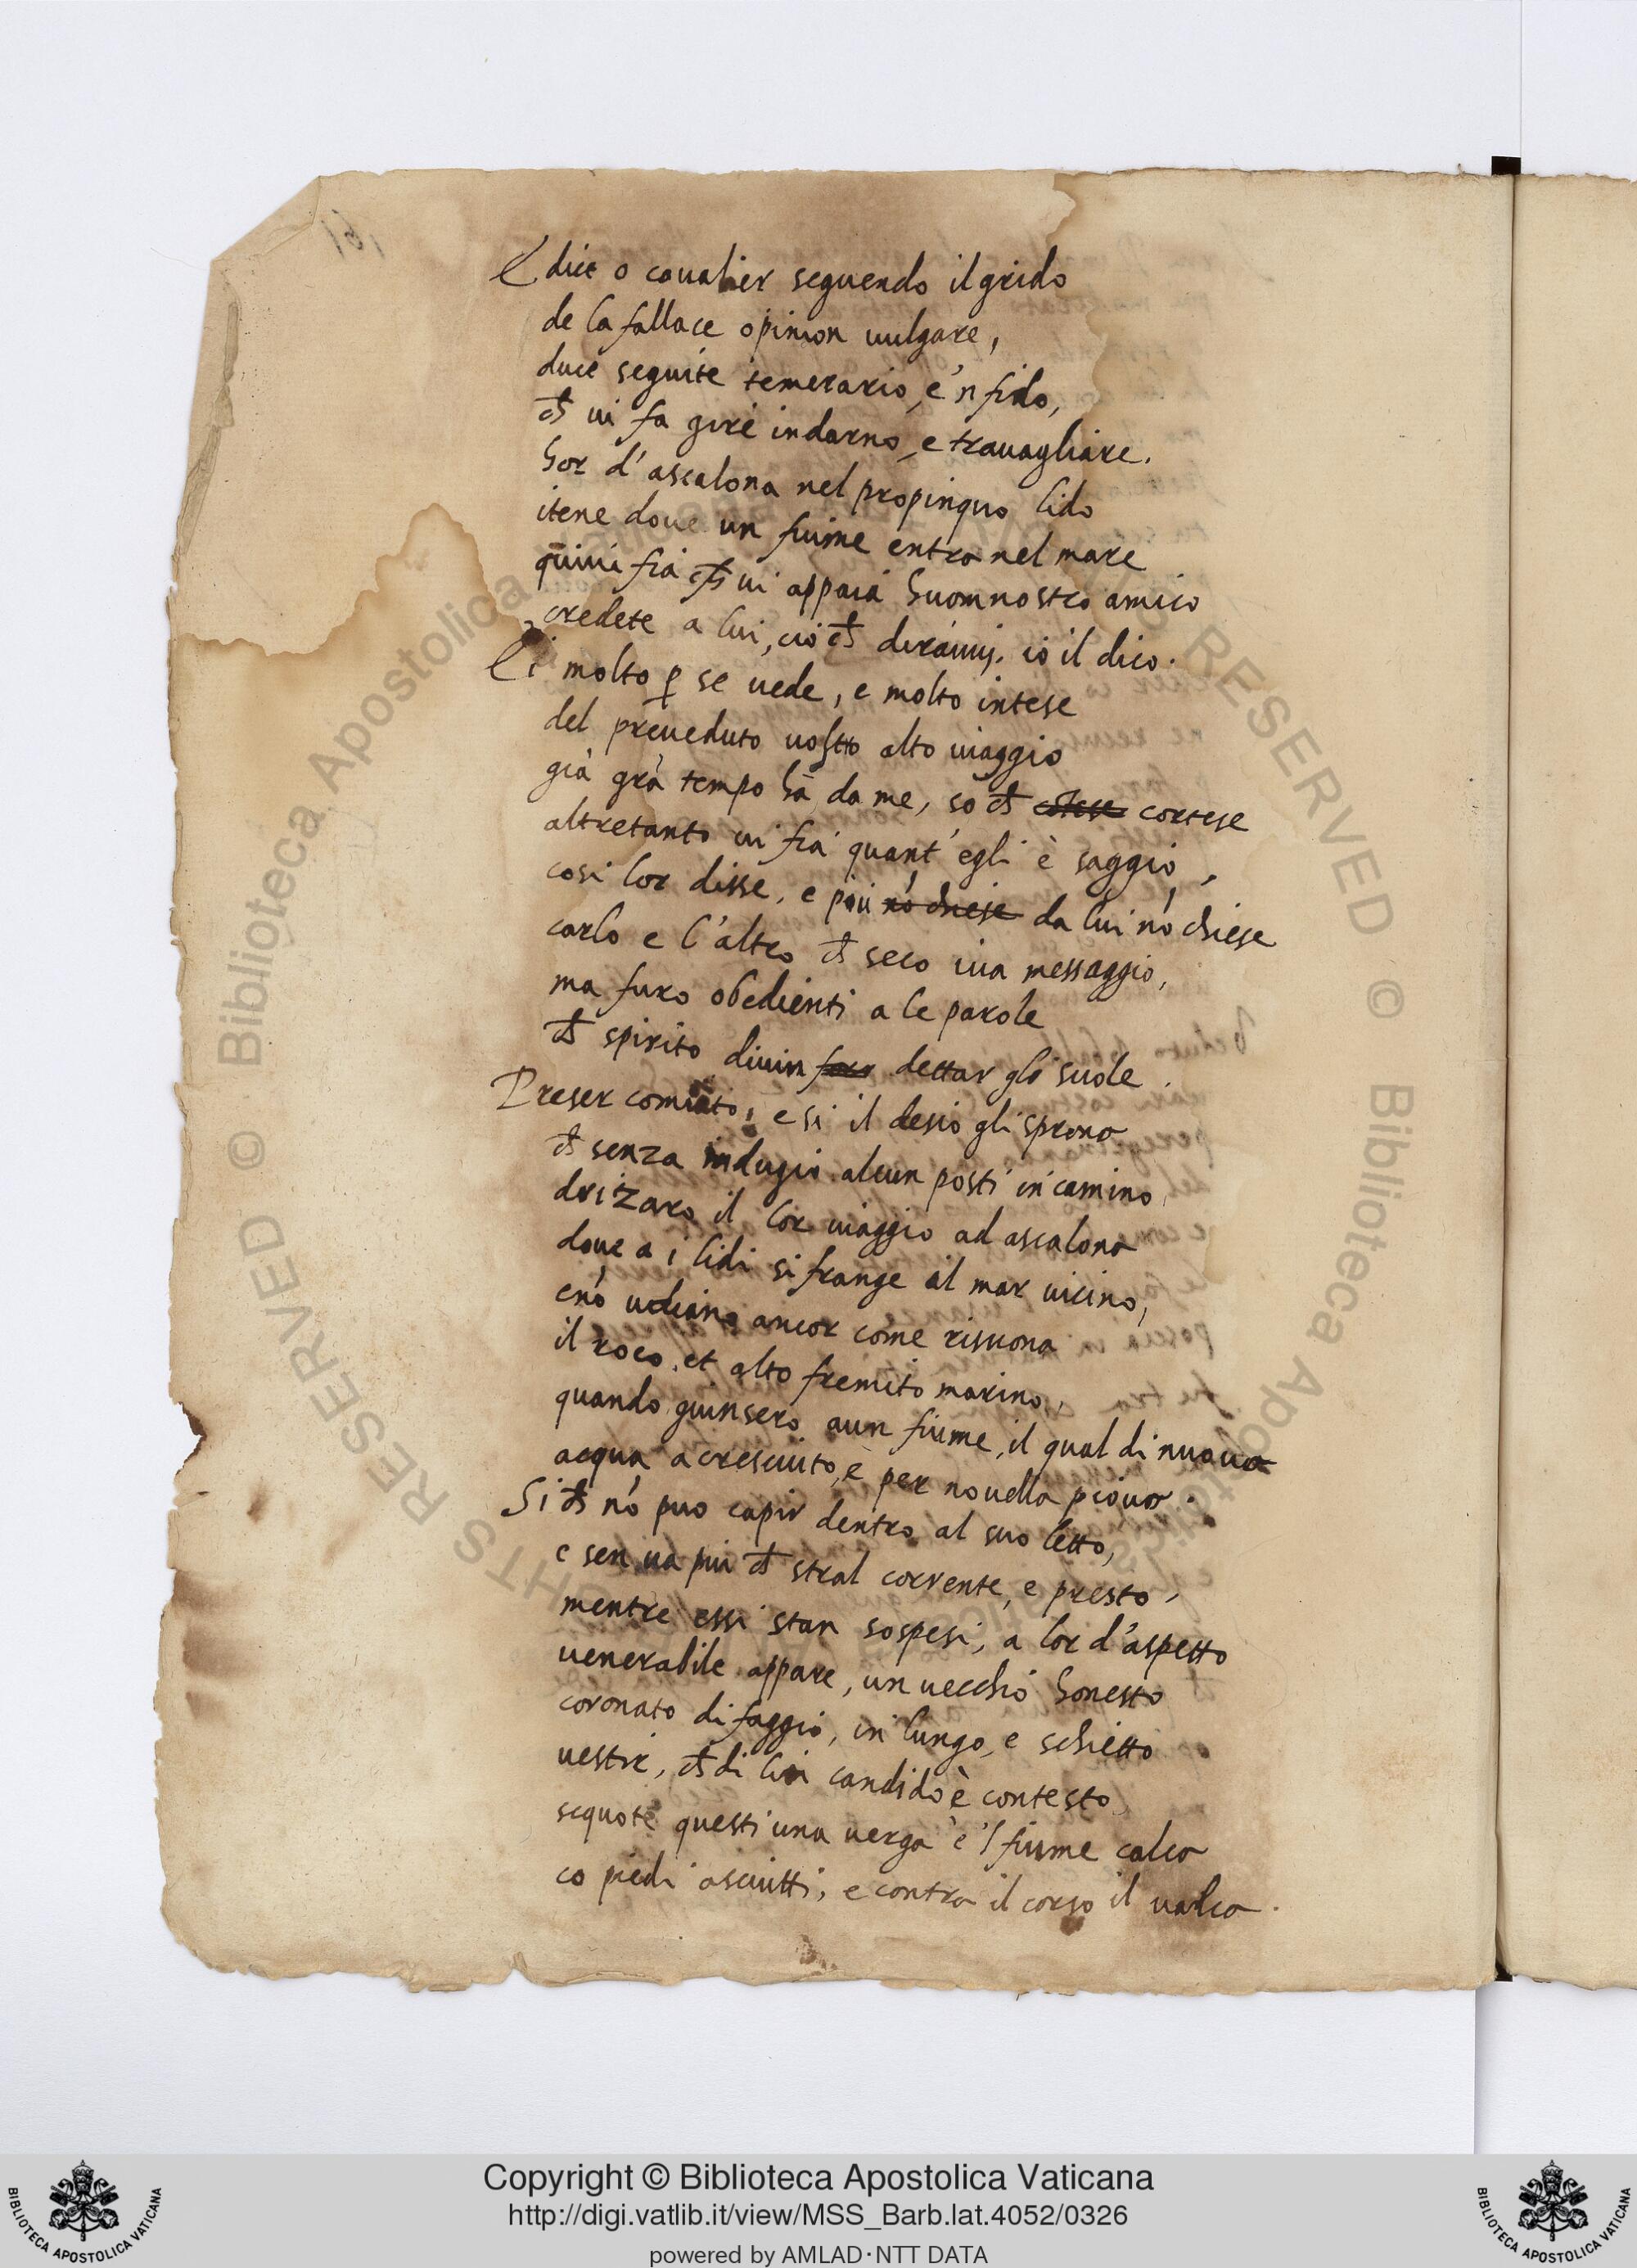 E dice o cavalier seguendo il grido
de la fallace opinion vulgare,
duce seguite temerario, e 'nfido,
ch̃ vi fa gire indarno, e travagliare.
hor d'ascalona nel propinquo lido
itene dove un fiume entra nel mare
quivi fia ch̃ vi appaia huom nostro amico
credete a lui, ciò ch̃ diravvi, io il dico.
Ei molto ꝑ se vede, e molto intese
del preveduto vostro alto viaggio
già grã tempo hà da me, so ch̃ cortese
altretanto vi fia quant'egli è saggio,
cosi lor disse, e piu nõ chiese da lui nõ chiese
carlo e l'altro ch̃ seco iva messaggio,
ma furo obedienti a le parole
ch̃ spirito divin dettar gli suole.
Preser comiato, e si il desio gli sprona
ch̃ senza indugio alcun posti in camino
drizaro il lor viaggio ad ascalona
dove a i lidi si frange il mar vicino,
e nõ udiano ancor come risuona
il roco, et alto fremito marino,
quando giunsero a un fiume, il qual di nuova
acqua accresciuto, è per novella piova.
Si ch̃ nõ puo capir dentro al suo letto,
e sen va piu ch̃ stral corrente, e presto,
mentre essi stan sospesi, a lor d'aspetto
venerabile appare, un vecchio honesto
coronato di faggio, in lungo, e schietto
vestir, ch̃ di lin candido è contesto,
squote questi una verga e 'l fiume calca
co piedi asciutti, e contra il corso il valca.
161
© Biblioteca Apostolica Vaticana
Copyright © Biblioteca Apostolica Vaticana
http://digi.vatlib.it/view/MSS_Barb.lat.4052/0326
powered by AMLAD·NTT DATA
BIBLIOTECA APOSTOLICA VATICANA
BIBLIOTECA APOSTOLICA VATICANA